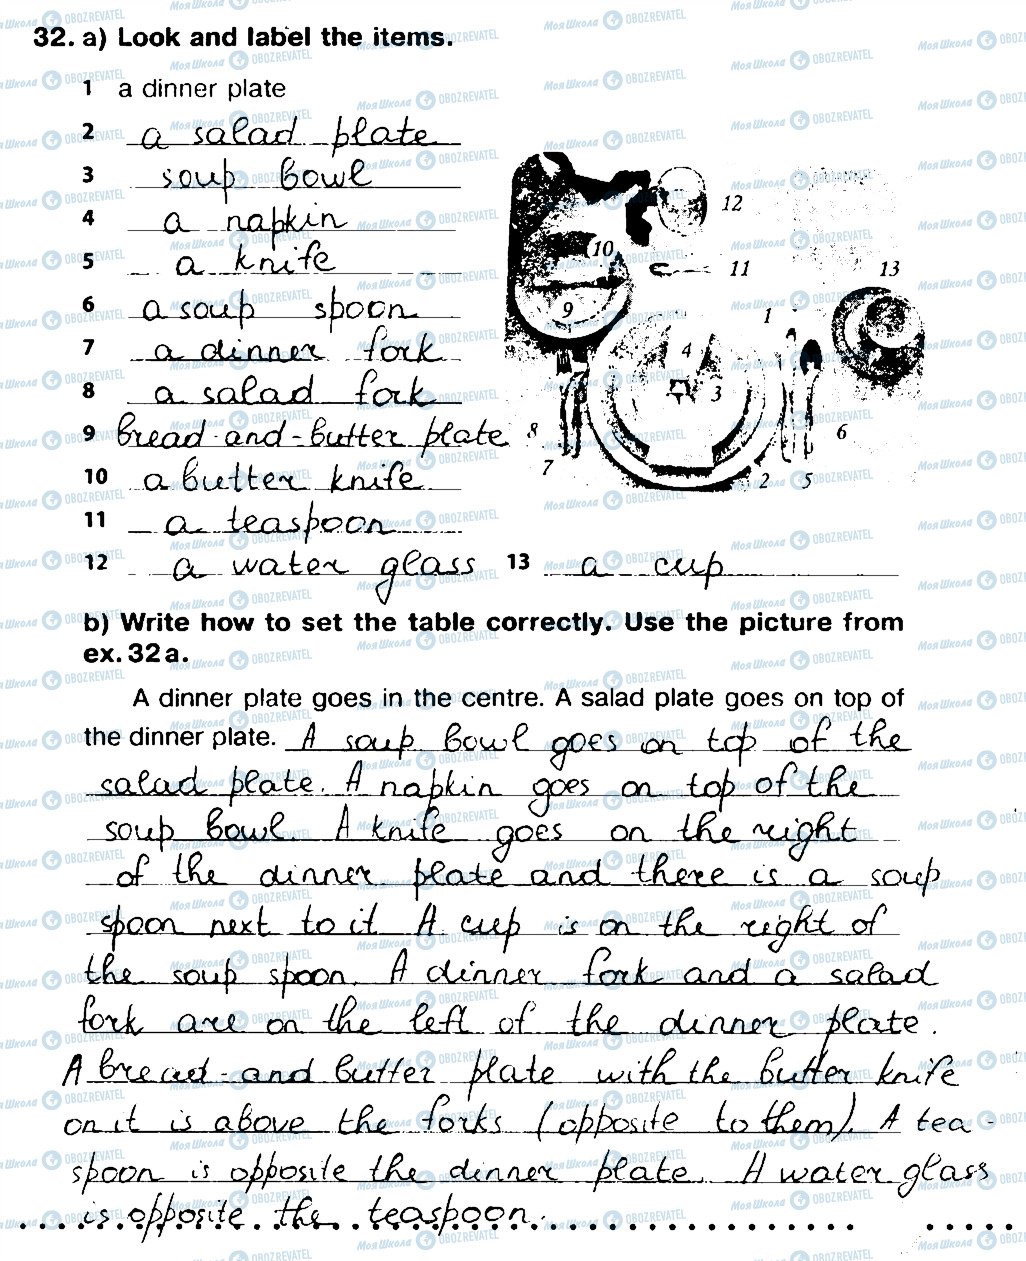 32. a) Look and label the items.
1 a dinner plate
2 a salad plate
3 soup bowl
4 a napkin
5 a knife
6 a soup spoon
7 a dinner fork
8 a salad fork
9 bread-and-butter plate
10 a butter knife
11 a teaspoon
12 a water glass 13 a cup
12
10 11 13
9 1
4
3
8 6
7 2 5
b) Write how to set the table correctly. Use the picture from
ex. 32 a.
A dinner plate goes in the centre. A salad plate goes on top of
the dinner plate. A soup bowl goes on top of the
salad plate. A napkin goes on top of the
soup bowl. A knife goes on the right
of the dinner plate and there is a soup
spoon next to it. A cup is on the right of
the soup spoon. A dinner fork and a salad
fork are on the left of the dinner plate.
A bread-and butter plate with the butter knife
on it is above the forks (opposite to them). A tea-
spoon is opposite the dinner plate. A water glass
is opposite the teaspoon.
Моя Школа OBOZREVATEL